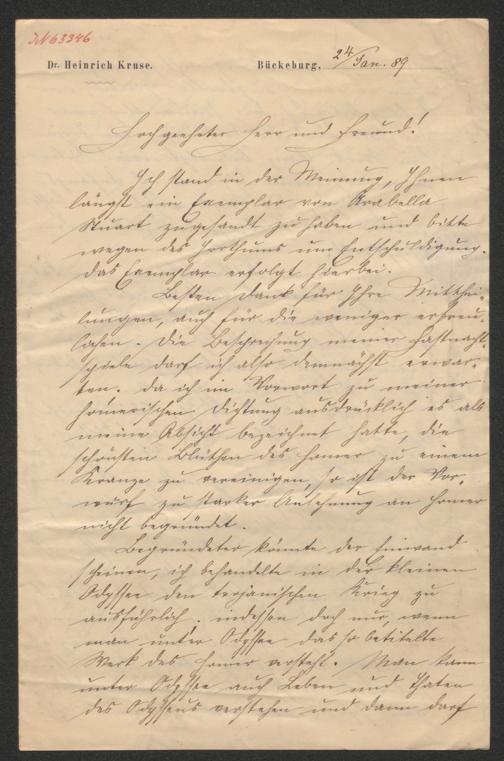 JN 63346
Dr. Heinrich Kruse.
Bückeburg, 24/Jan. 89
Hochgeehrter Herr und Freund!
Ich stand in der Meinung, Ihnen
längst ein Exemplar von Arabella
Stuart zugesandt zu haben und bitte
wegen des Irrthums um Entschuldigung.
Das Exemplar erfolgt hierbei.
Besten Dank für Ihre Mitthei-
lungen, auch für die weniger erfreu-
lichen. Die Besprechung meiner Fastnacht-
spiele darf ich also demnächst erwar-
ten. Da ich im Vorwort zu meiner
homerischen Dichtung ausdrücklich es als
meine Absicht bezeichnet hatte, die
schönsten Blüthen des Homer zu einem
Kranze zu vereinigen, so ist der Vor-
wurf zu starker Anlehnung an Homer
nicht begründet.
Begründeter könnte der Einwand
scheinen, ich behandelte in der kleinen
Odyssee den trojanischen Krieg zu
ausführlich, indessen doch nur, wenn
man unter Odyssee das so betitelte
Werk des Homer versteht. Man kann
unter Odyssee auch Leben und Thaten
des Odysseus verstehen und dann darf